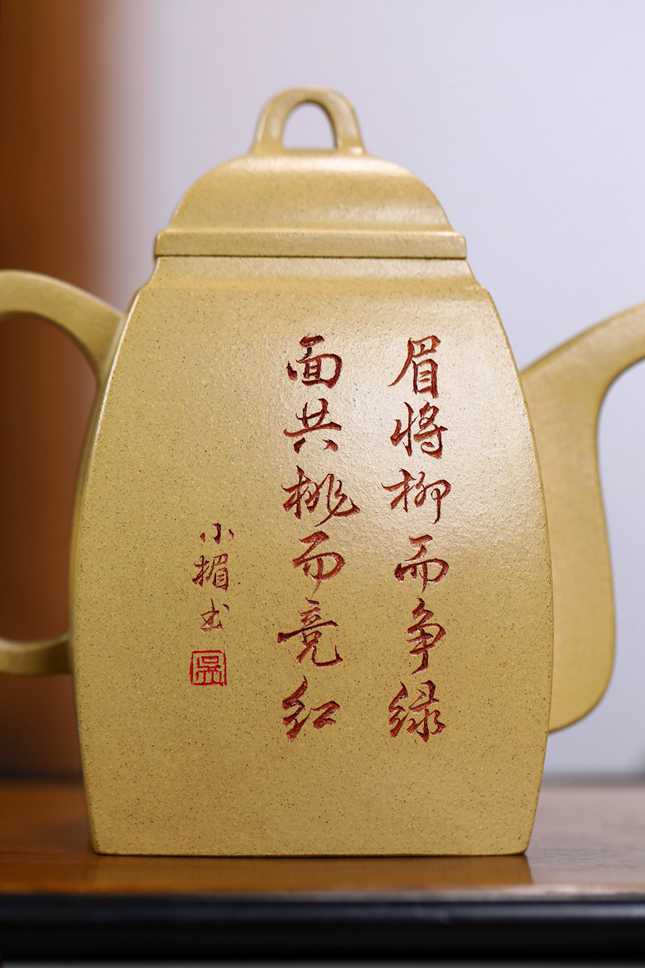 眉将柳而争绿
面共桃而竞红
小楣书
吴